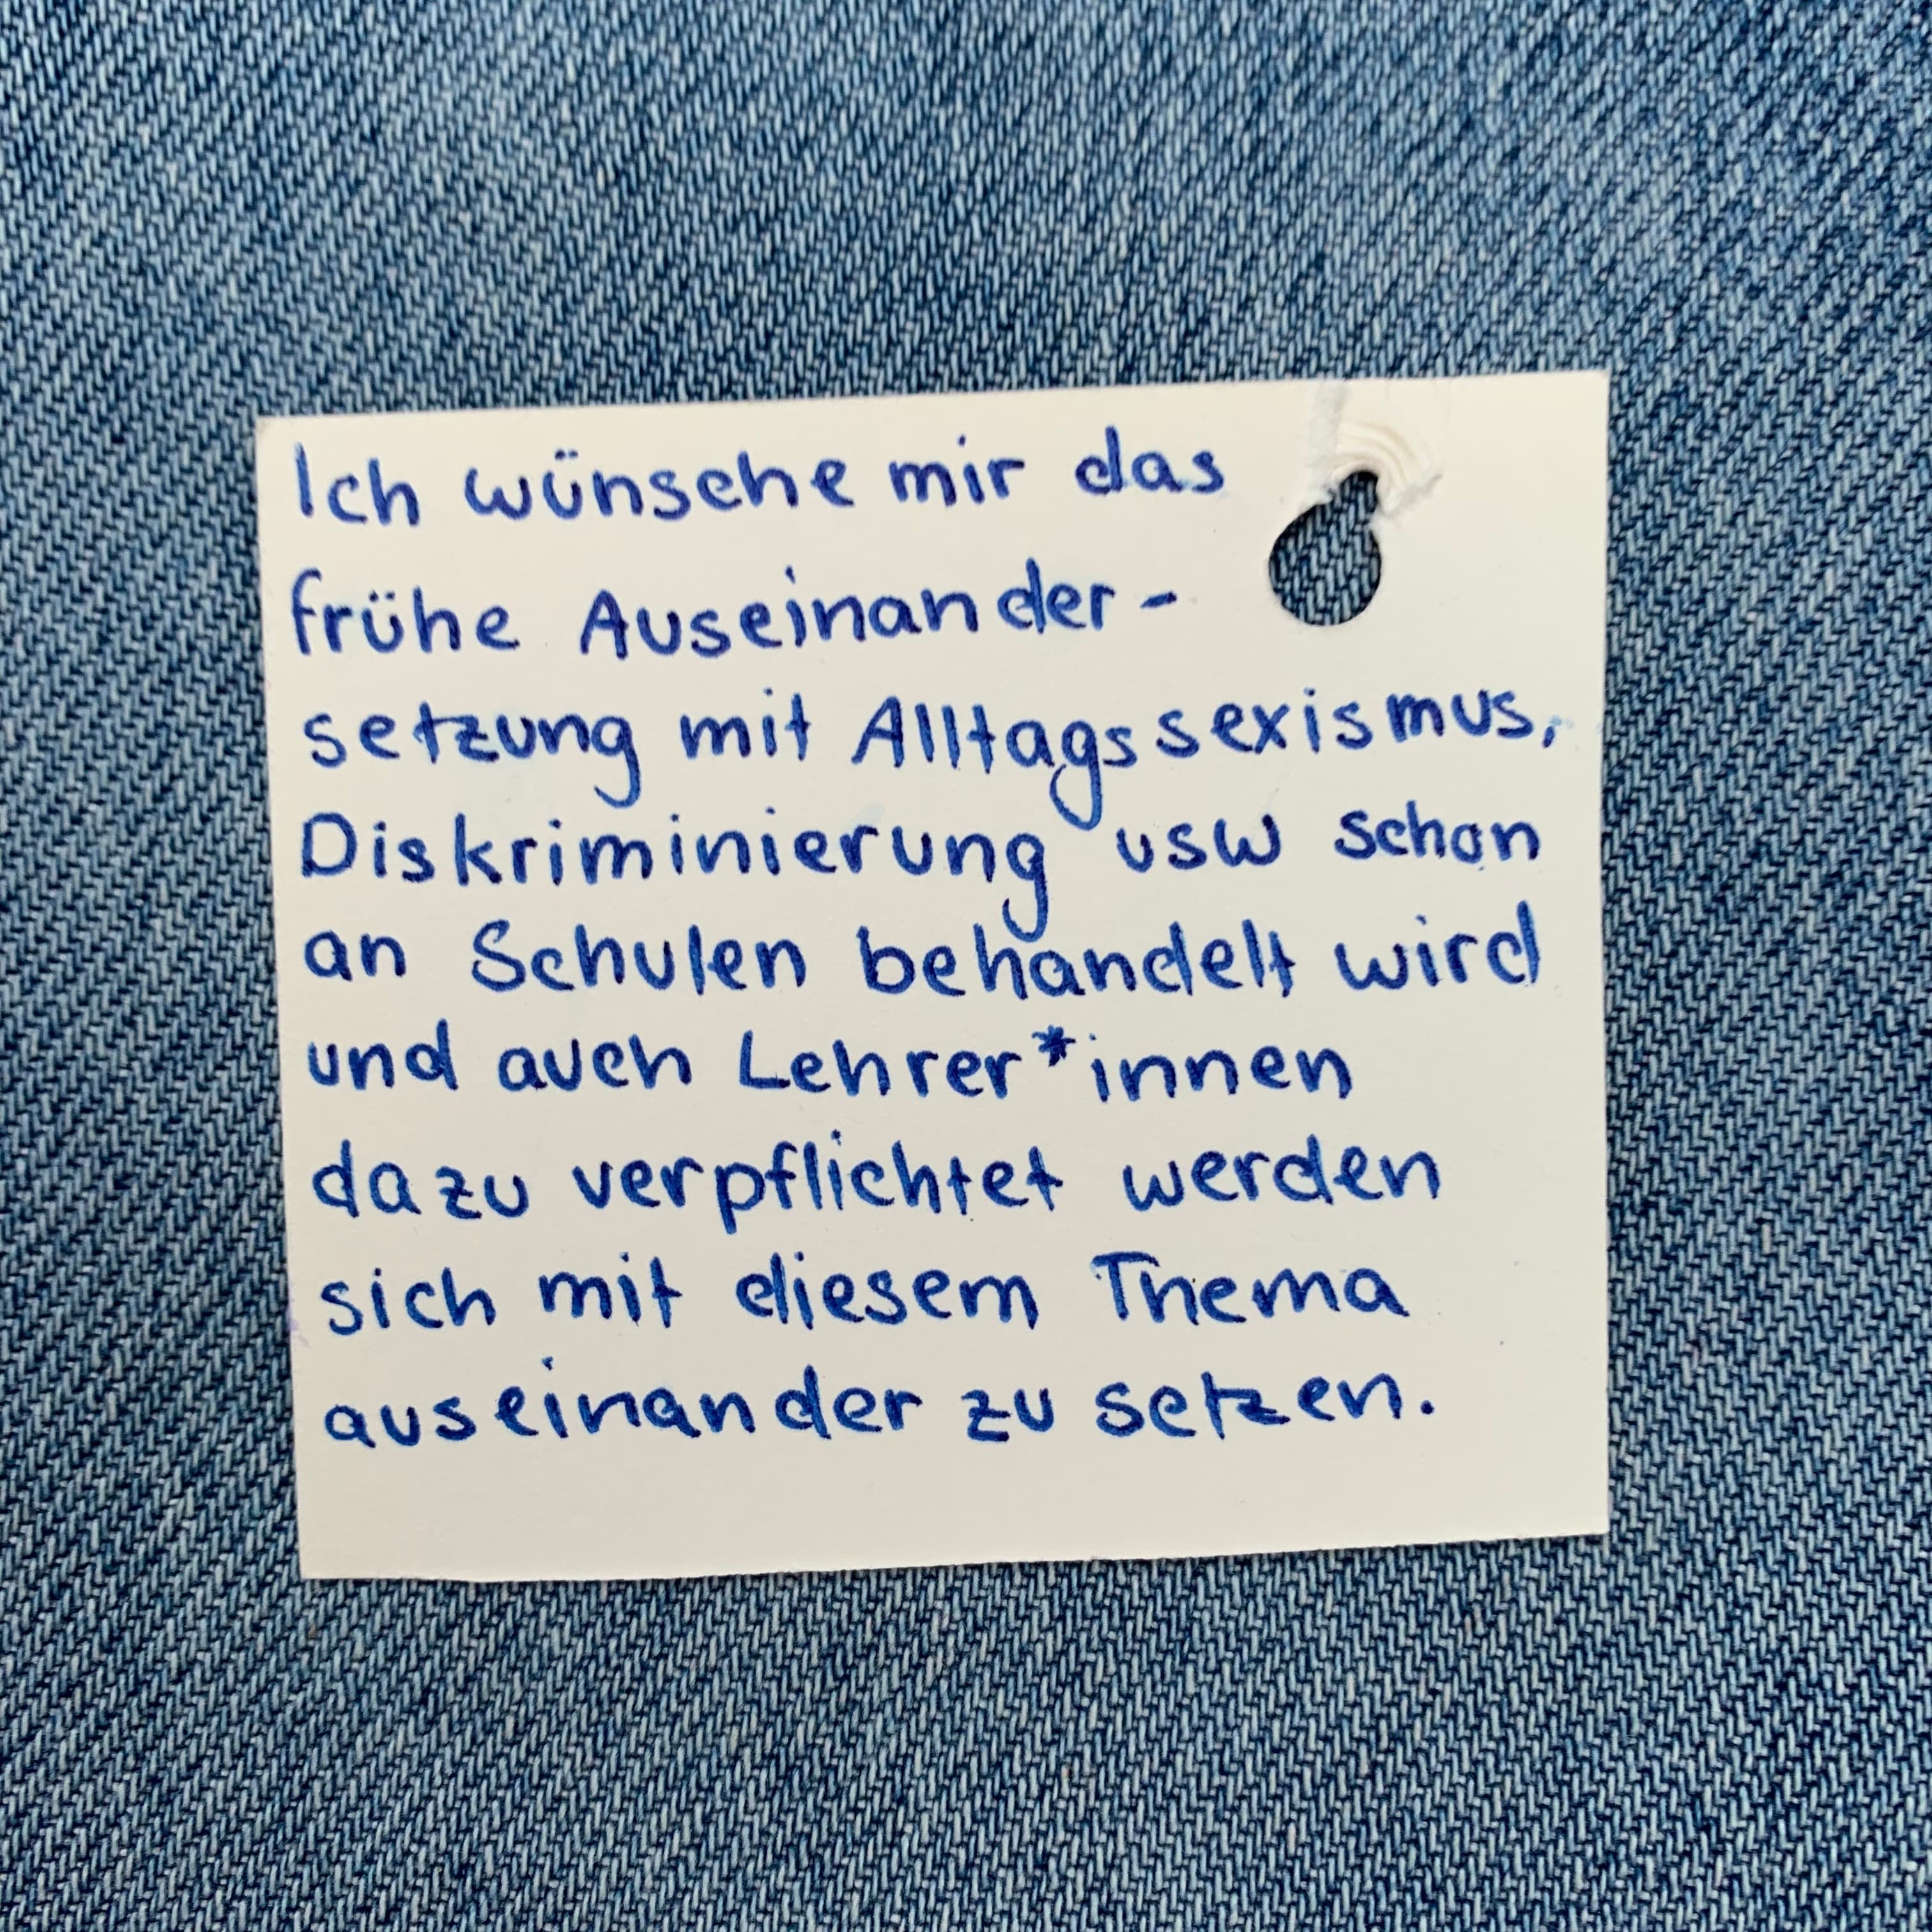 Ich wünsche mir das
frühe Auseinander-
setzung mit Alltagssexismus,
Diskriminierung usw schon
an Schulen behandelt wird
und auch Lehrer*innen
dazu verpflichtet werden
sich mit diesem Thema
auseinander zu setzen.